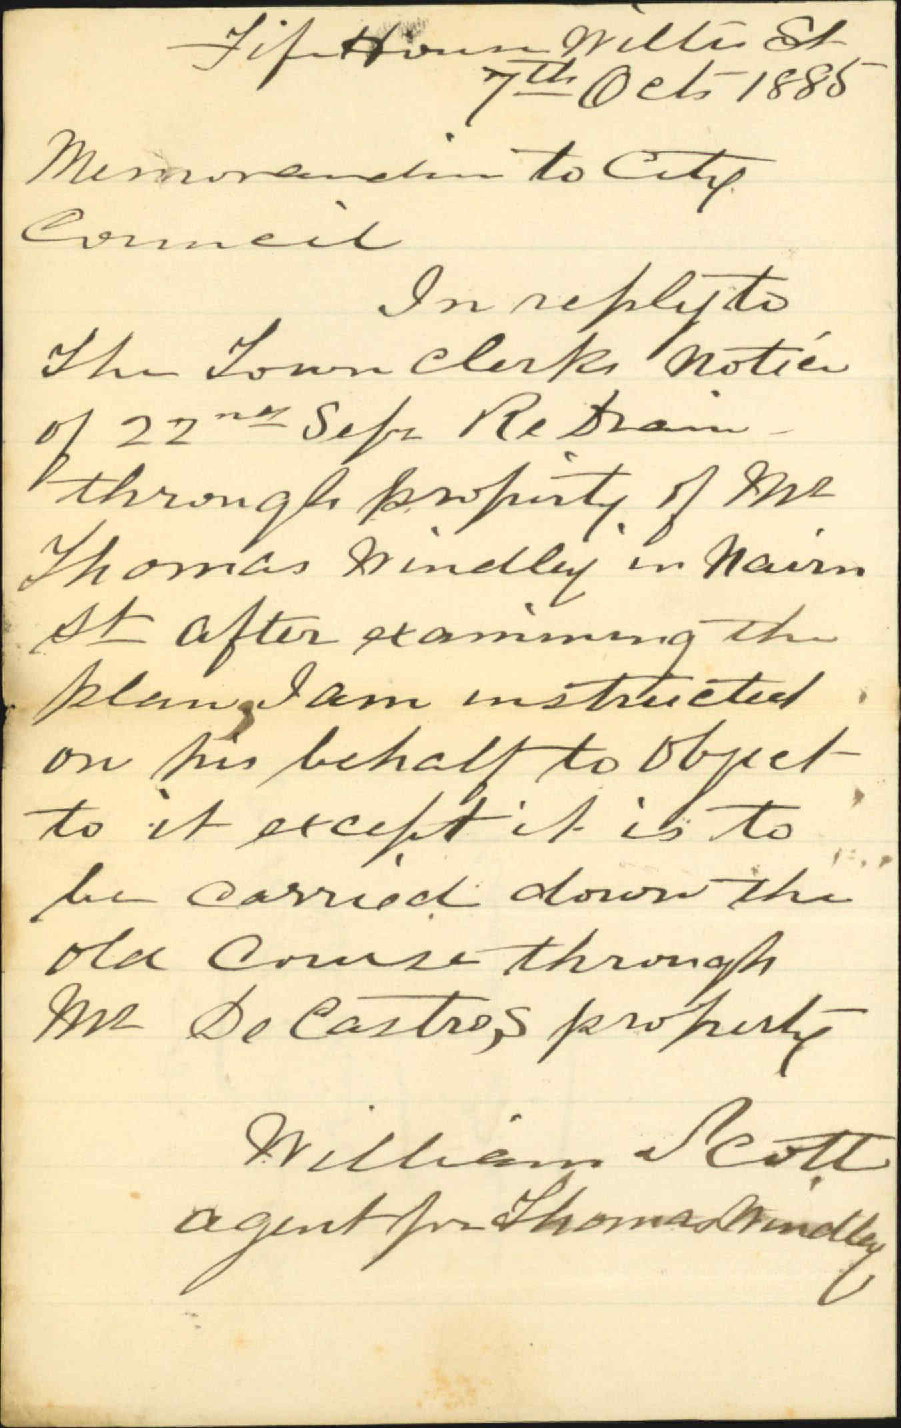 Fife House Willis St
7th Oct 1885
Memorandum to City
Council
In reply to
The Town Clerks Notice
of 22nd Sepr Re Drain
through property of Mr
Thomas Windley in Nairn
St after examining the
plan I am instructed
on his behalf to object
to it except it is to
be carried down the
old course through
Mr De Castro,s property
William Scott
agent for Thomas Windley